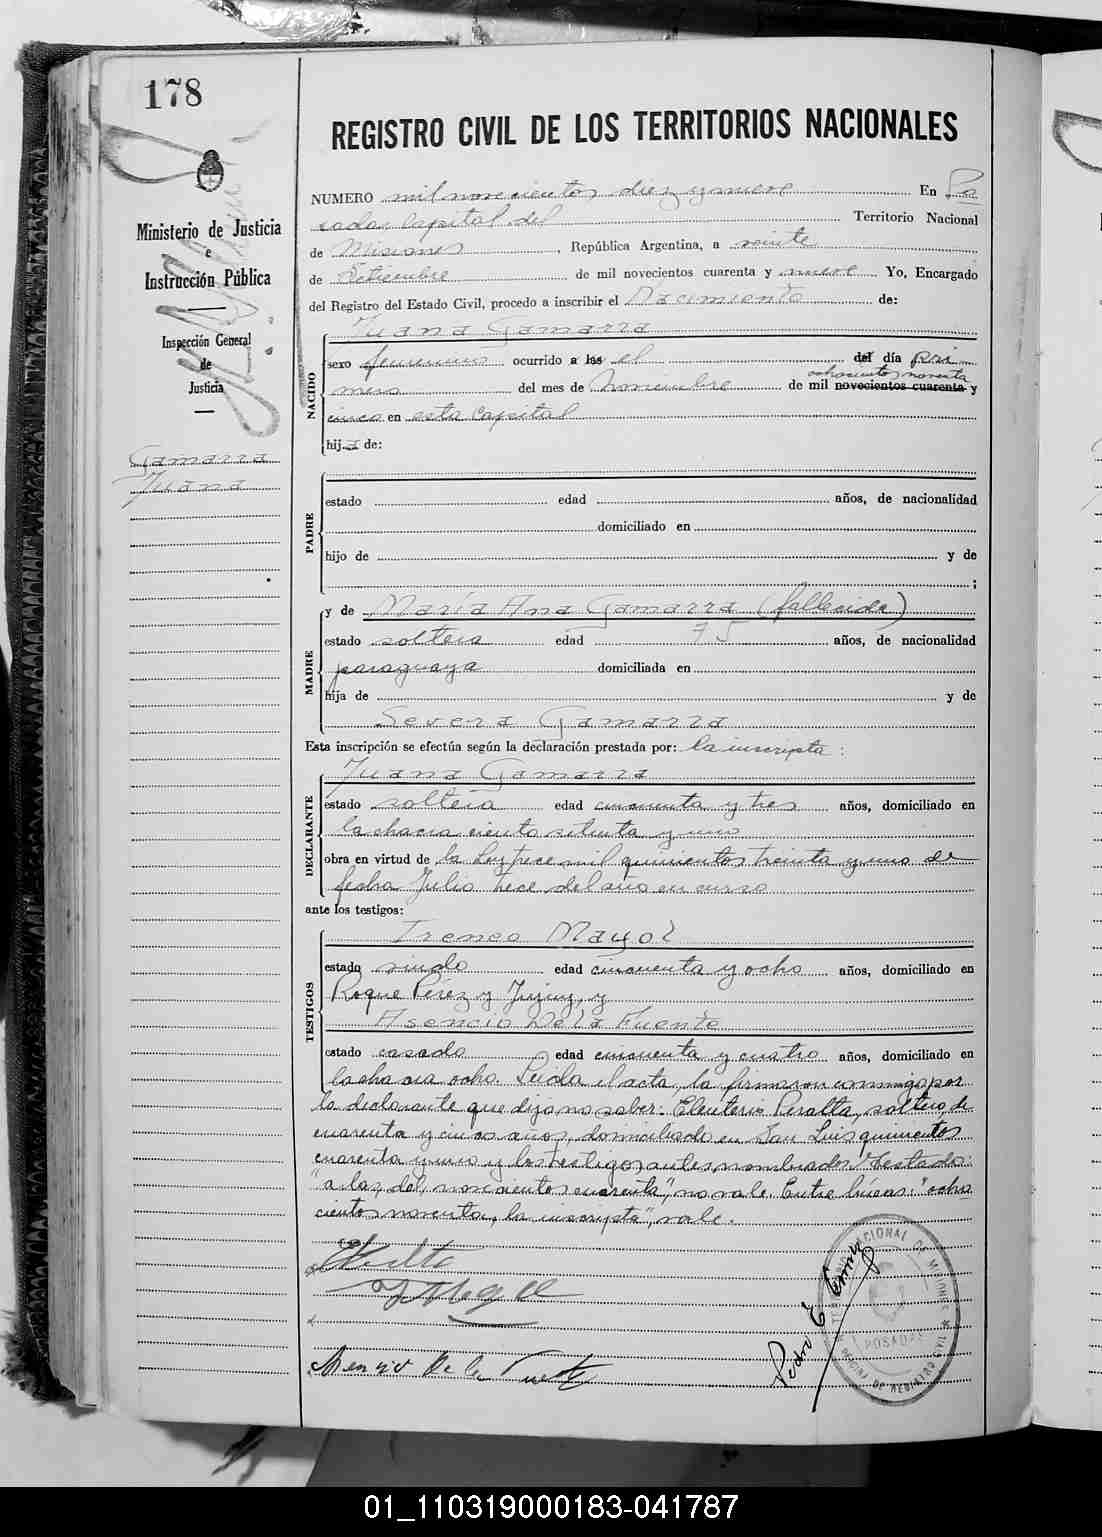 178
REGISTRO CIVIL DE LOS TERRITORIOS NACIONALES
Ministerio de Justicia
e
Instrucción Pública
Inspección General
de
Justicia
Gamarra
Juana
NUMERO mil novecientos diez y nueve En Po
sadas Capital del Territorio Nacional
de Misiones, República Argentina, a veinte
de Setiembre de mil novecientos cuarenta y nueve Yo, Encargado
del Registro del Estado Civil, procedo a inscribir el Nacimiento de:
Juana Gamarra
NACIDO
sexo femenino ocurrido a las el del día pri
ochocientos noventa
mero del mes de Noviembre de mil novecientos cuarenta y
cinco en esta Capital
hija de:
PADRE
estado edad años, de nacionalidad
domiciliado en
hijo de y de
;
MADRE
y de María Ana Gamarra (fallecida)
estado soltera edad 75 años, de nacionalidad
paraguaya domiciliada en
hija de y de
Severa Gamarra
Esta inscripción se efectúa según la declaración prestada por: la inscripta:
Juana Gamarra
DECLARANTE
estado soltera edad cincuenta y tres años, domiciliado en
la chacra ciento setenta y uno
obra en virtud de la Ley trece mil quinientos treinta y uno de
fecha Julio trece del año en curso
ante los testigos:
Ireneo Mayol
TESTIGOS
estado viudo edad cincuenta y ocho años, domiciliado en
Roque Pérez y Jujuy, y
Asencio De la Fuente
estado casado edad cincuenta y cuatro años, domiciliado en
la chacra ocho. Leída el acta, la firmaron conmigo por
la declarante que dijo no saber: Eleuterio Peralta, soltero, de
cuarenta y cinco años, domiciliado en San Luis quinientos
cuarenta y uno y los testigos antes nombrados. Testado:
"a las, del, novecientos cuarenta", no vale. Entre líneas: "ocho
cientos noventa, la inscripta", vale.
Asencio De la Fuente
Pedro E.
TERRITORIO NACIONAL DE MISIONES
POSADAS
OFICINA DE REGISTRO CIVIL
01_110319000183-041787